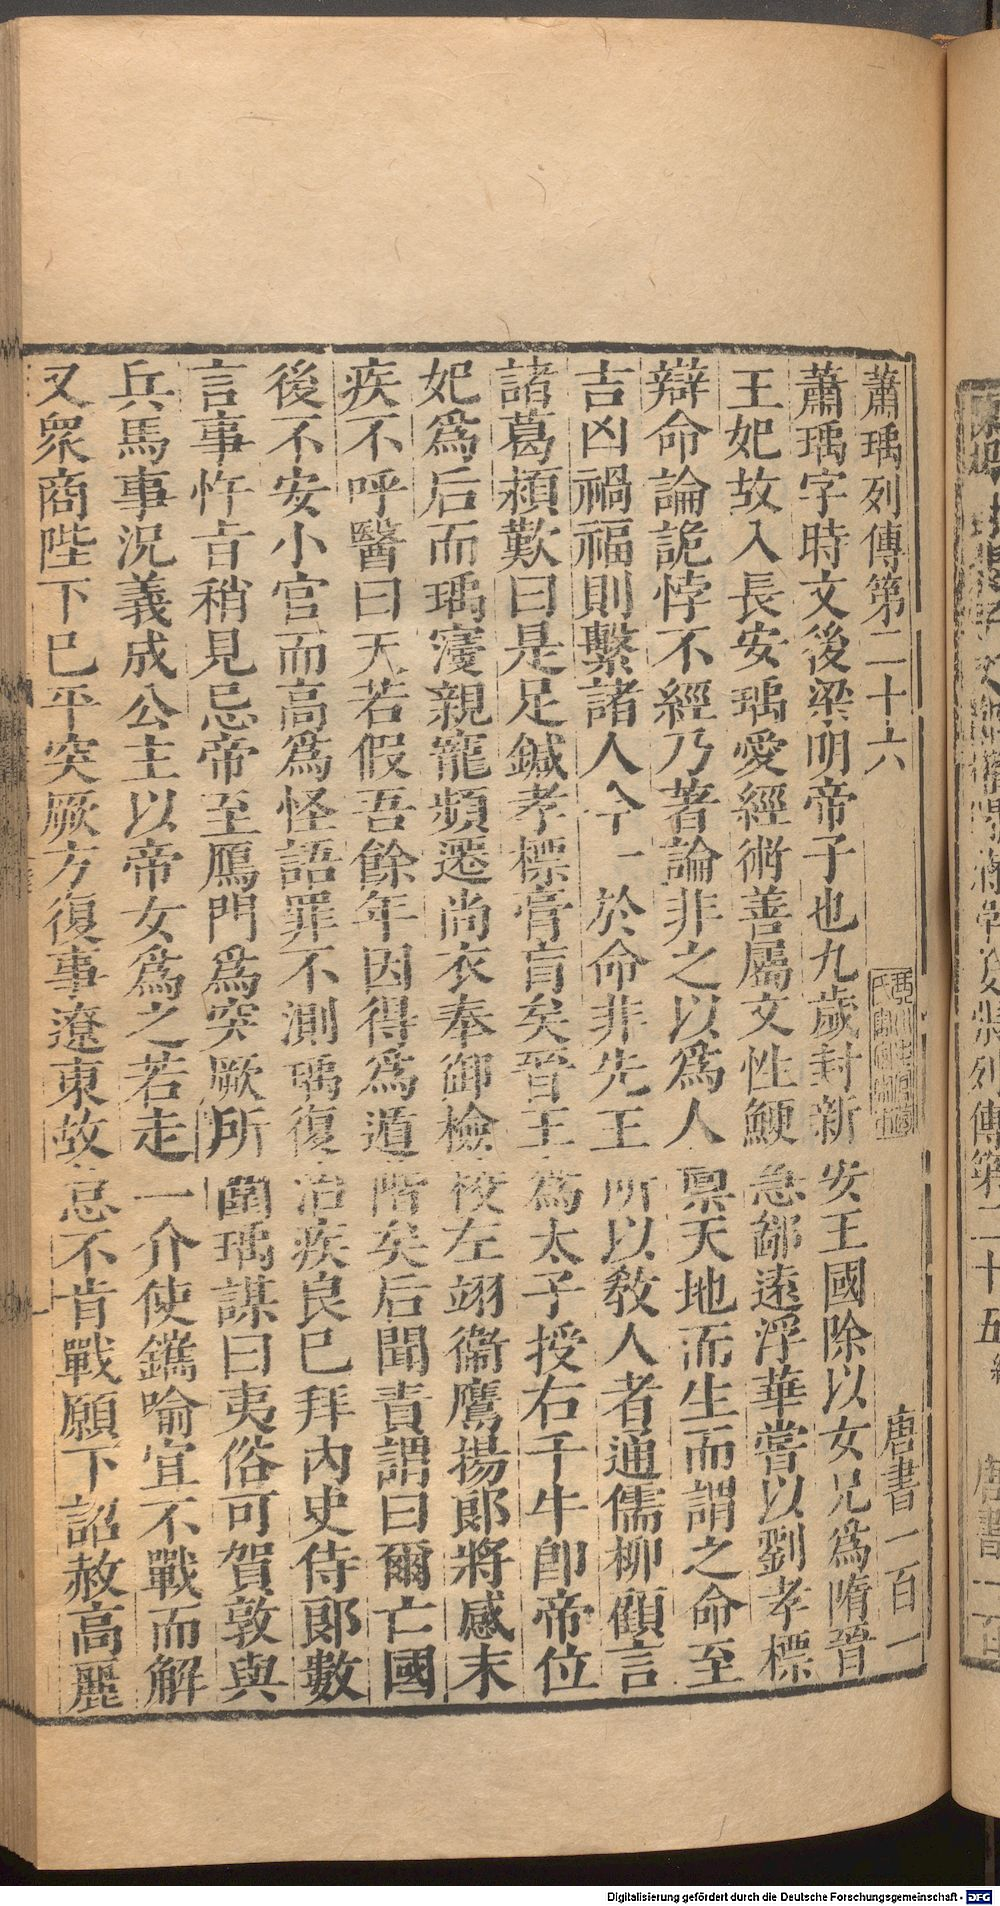 蕭瑀列傳第二十六　唐書一百一
蕭瑀字時文後梁明帝子也九歲封新安王國除以女兄爲隋晉
王妃故入長安瑀愛經術善屬文性鯁急鄙遠浮華嘗以劉孝標
辯命論詭悖不經乃著論非之以爲人稟天地而生而謂之命至
吉凶禍福則繫諸人今一於命非先王所以教人者通儒柳顧言
諸葛潁歎曰是足鍼孝標膏肓矣晉王爲太子授右千牛卽帝位
妃爲后而瑀寖親寵頻遷尚衣奉御檢校左翊衞鷹揚郞將感末
疾不呼醫曰天若假吾餘年因得爲遁階矣后聞責謂曰爾亡國
後不安小官而高爲怪語罪不測瑀復治疾良已拜內史侍郞數
言事忤㫖稍見忌帝至鴈門爲突厥所圍瑀謀曰夷俗可賀敦與
兵馬事況義成公主以帝女爲之若走一介使鐫喻宜不戰而解
又衆商陛下已平突厥方復事遼東故怠不肯戰願下詔赦高麗
Digitalisierung gefördert durch die Deutsche Forschungsgemeinschaft - DFG